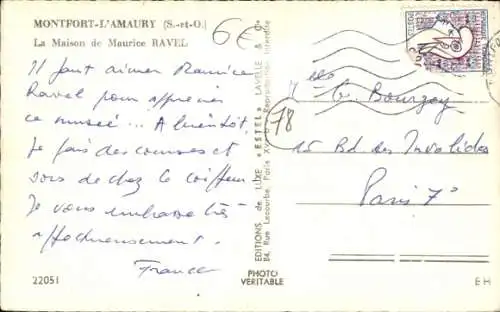 MONTFORT-L'AMAURY (S.-et-O.)
La Maison de Maurice RAVEL
6€
Il faut aimer Maurice
Ravel pour apprécier
ce musée... A bientôt,
Je fais des courses et
sors de chez le coiffeur
Je vous embrasse très
affectueusement.
France
22051
EDITIONS de LUXE "ESTEL" LAVELLE &
84, Rue Lecourbe, Paris XV Reproduction interdite
PHOTO
VERITABLE
G. Bourgoy
78
15 Bd des Invalides
Paris 7°
EH